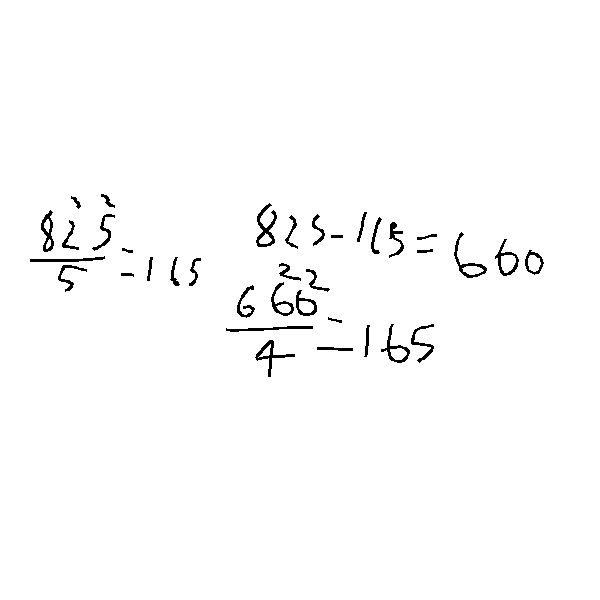 825/5 = 165
825 - 165 = 660
660/4 = 165